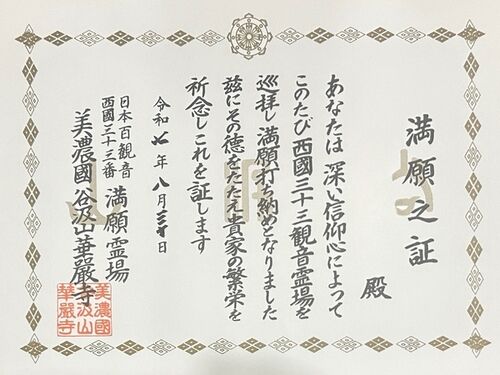 満願之証
殿
あなたは深い信仰心によって
このたび西國三十三観音霊場を
巡拝し満願打ち納めとなりました
茲にその徳をたたえ貴家の繁栄を
祈念しこれを証します
令和七年八月三十日
日本百観音
西國三十三番
満願霊場
美濃國谷汲山華嚴寺
美濃國
谷汲山
華嚴寺